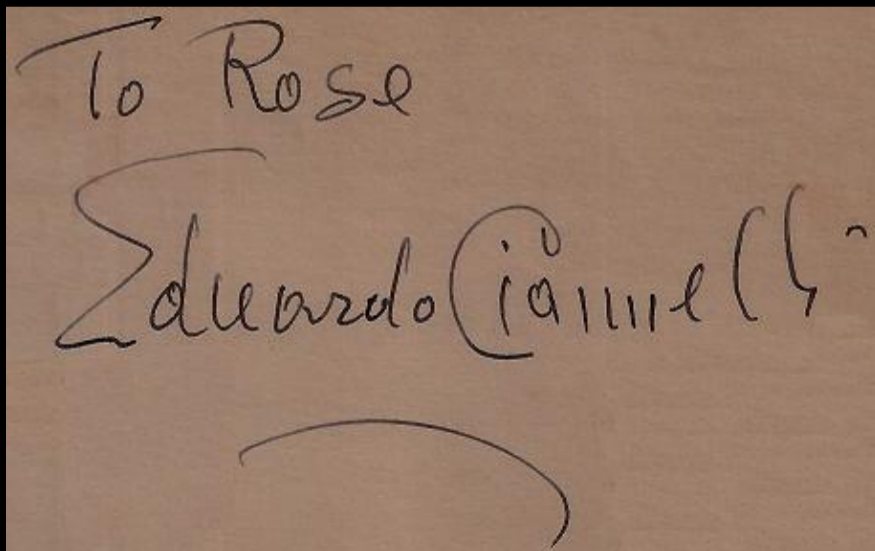 To Rose
Eduardo Ciannelli